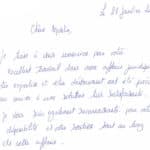 Le 28 janvier
Chère
Je tiens à vous remercier pour votre
excellent travail dans mon affaire juridique.
Votre expertise et votre dévouement ont été
à une solution très satisfaisante.
Je vous suis également reconnaissante pour votre
disponibilité et votre soutien tout au long
de cette affaire.